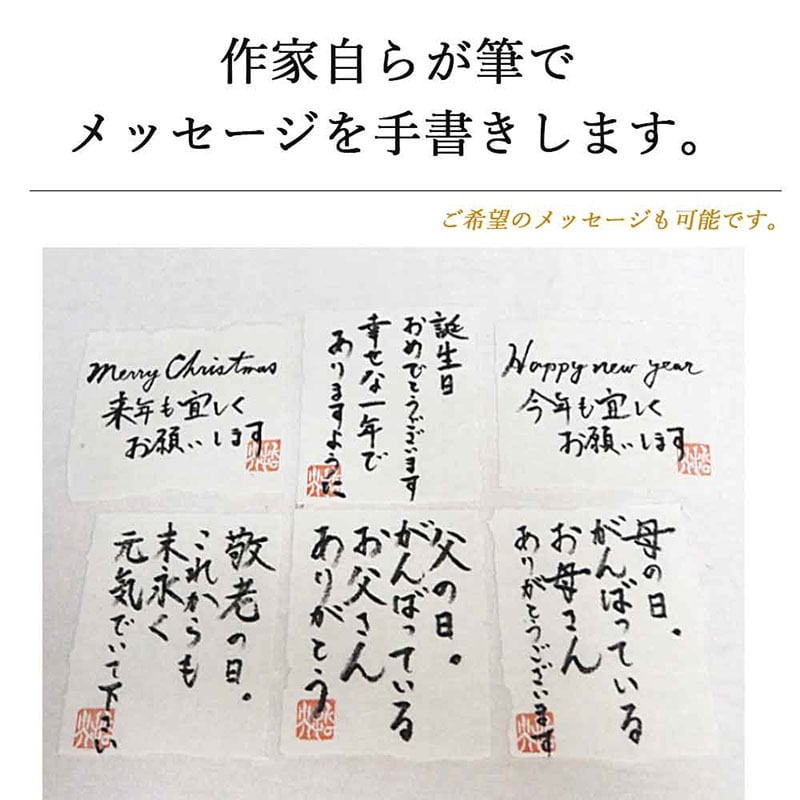 作家自らが筆で
メッセージを手書きします。
ご希望のメッセージも可能です。
Merry Christmas
来年も宜しく
お願いします
誕生日
おめでとうございます
幸せな一年で
ありますように
Happy new year
今年も宜しく
お願いします
敬老の日。
これからも
末永く
元気でいて下さい
父の日。
がんばっている
お父さん
ありがとう
母の日。
がんばっている
お母さん
ありがとうございます